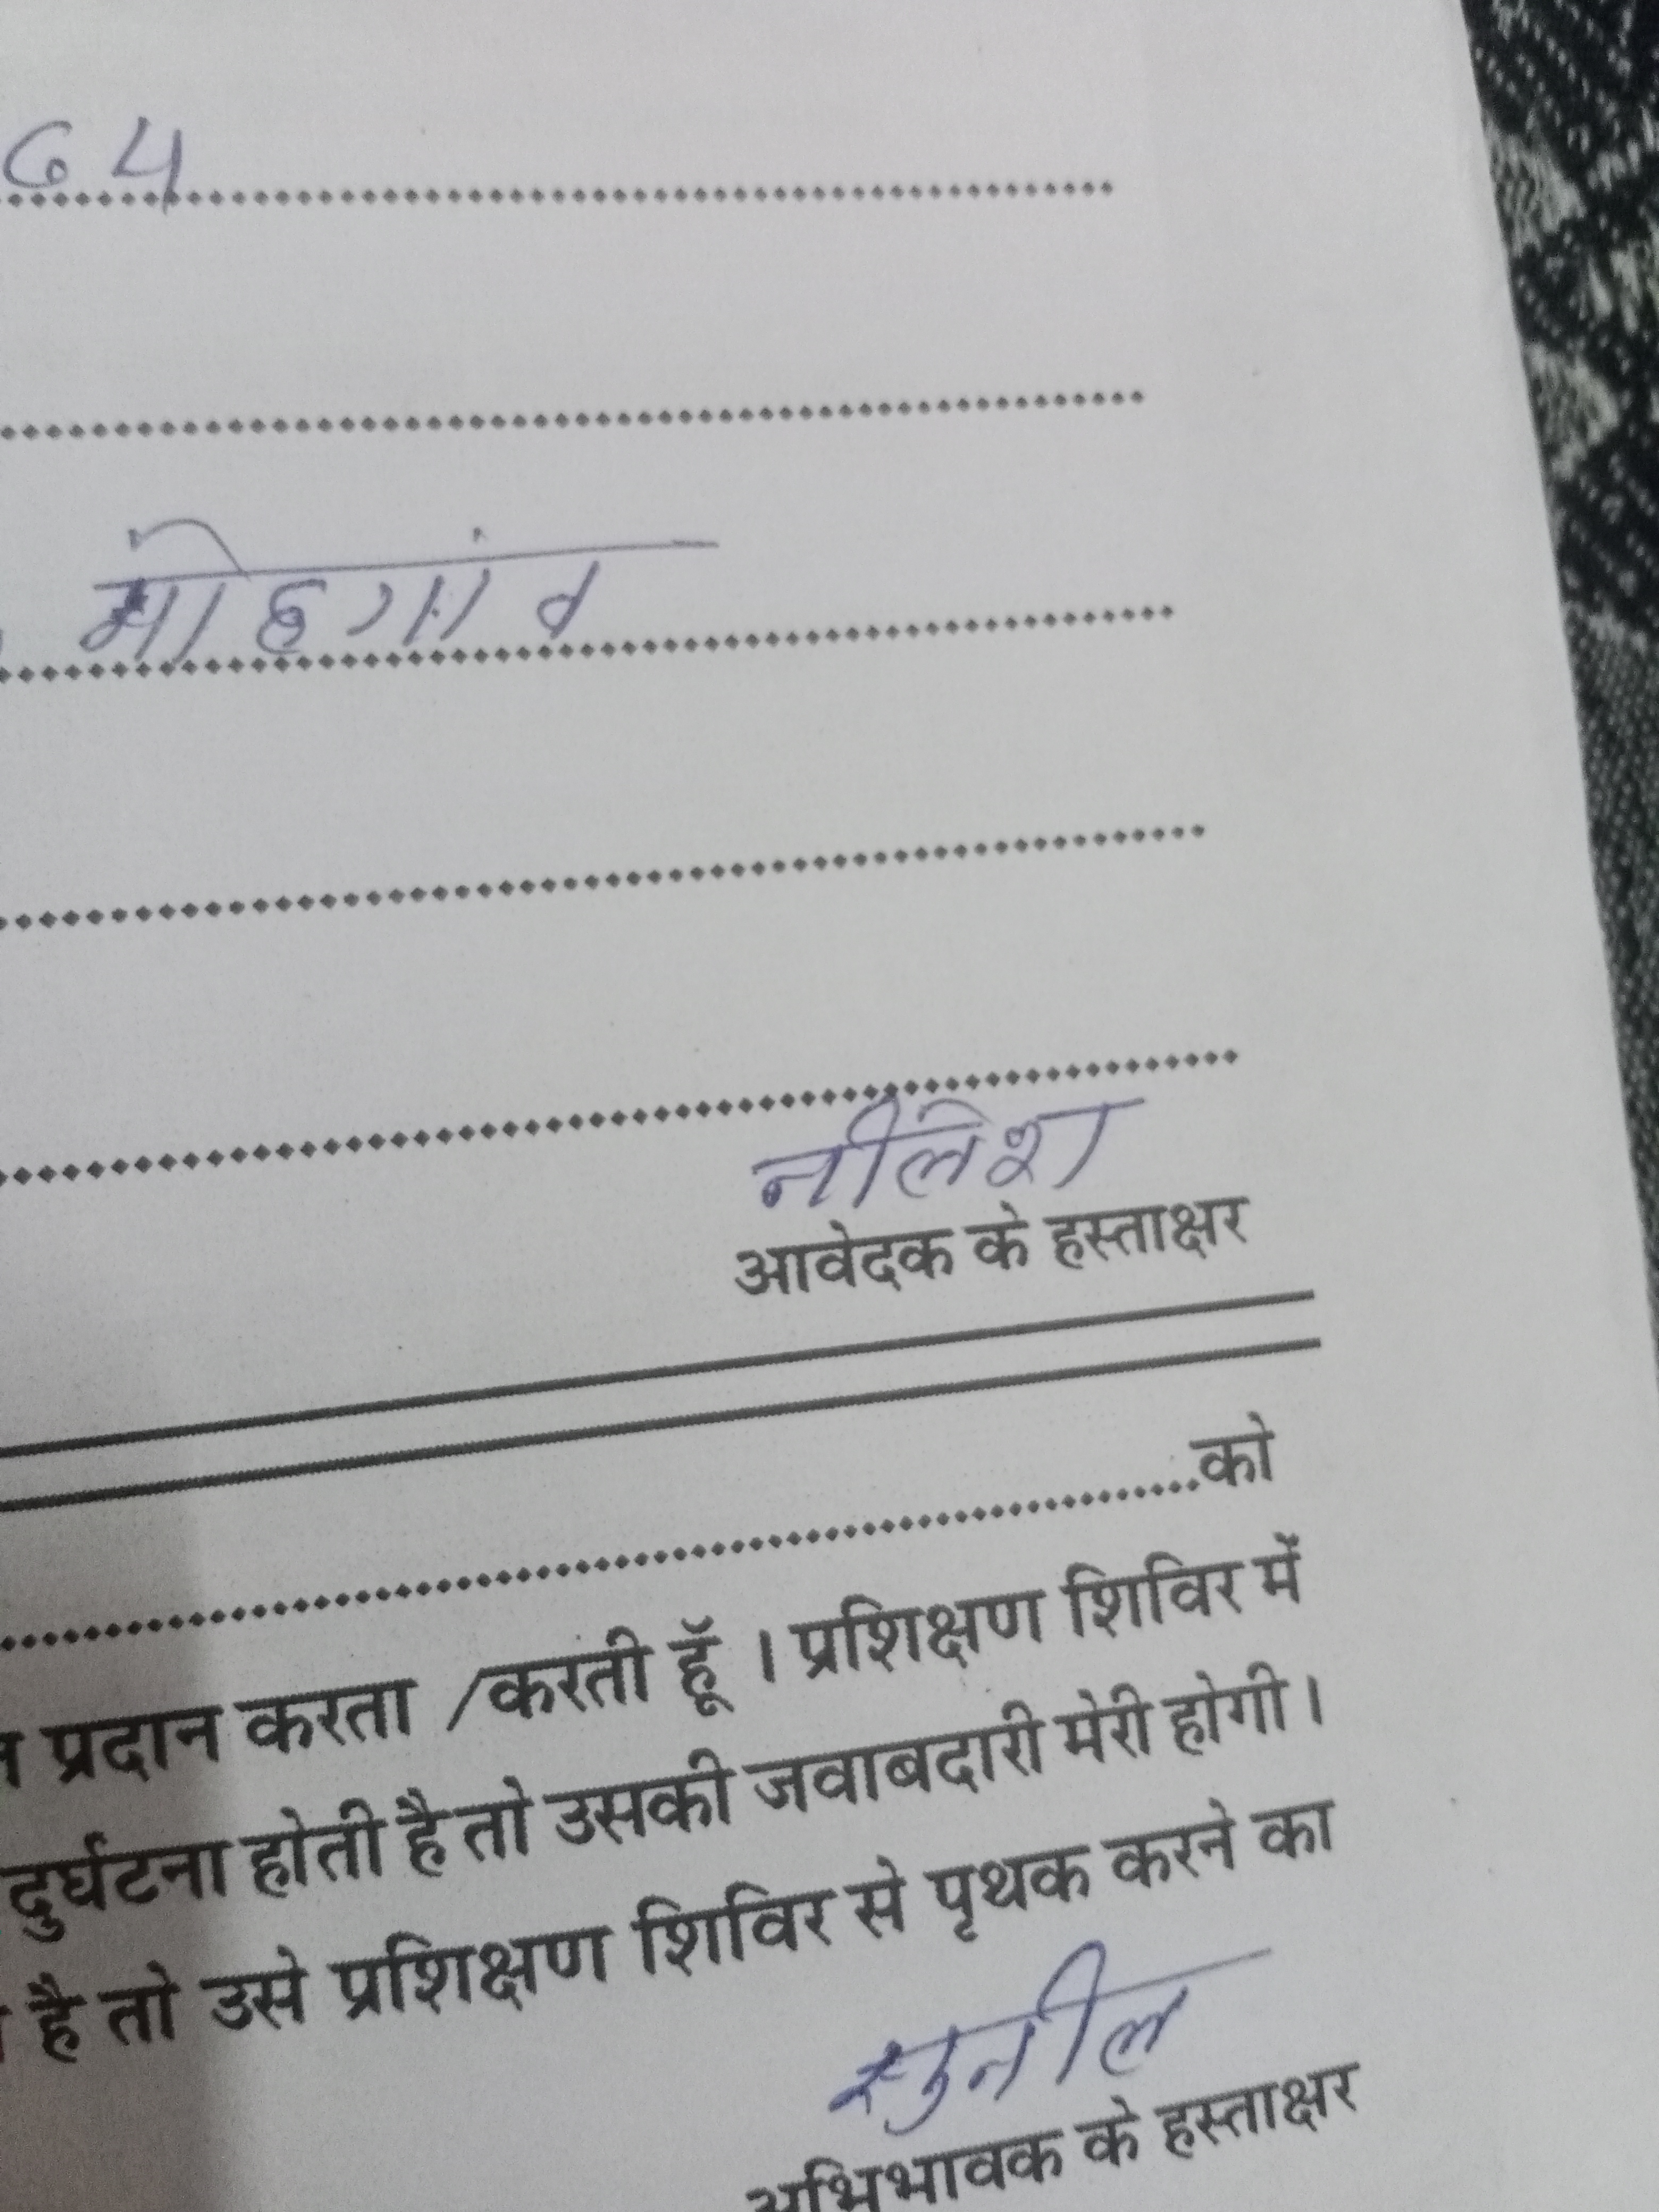 64
मोहगांव
नीलेश
आवेदक के हस्ताक्षर
को
प्रदान करता /करती हूँ । प्रशिक्षण शिविर में
दुर्घटना होती है तो उसकी जवाबदारी मेरी होगी।
है तो उसे प्रशिक्षण शिविर से पृथक करने का
सुनील
अभिभावक के हस्ताक्षर